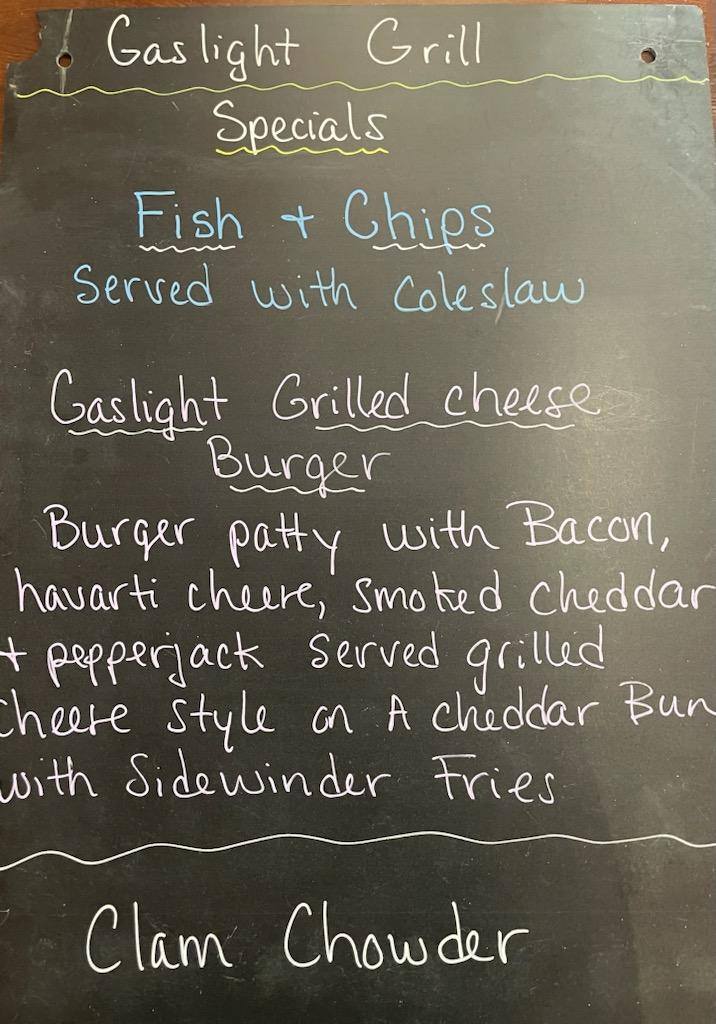 Gaslight Grill
Specials
Fish + Chips
Served with Coleslaw
Gaslight Grilled cheese
Burger
Burger patty with Bacon,
havarti cheese, smoked cheddar
+ pepperjack served grilled
cheese style on A cheddar Bun
with Sidewinder Fries
Clam Chowder